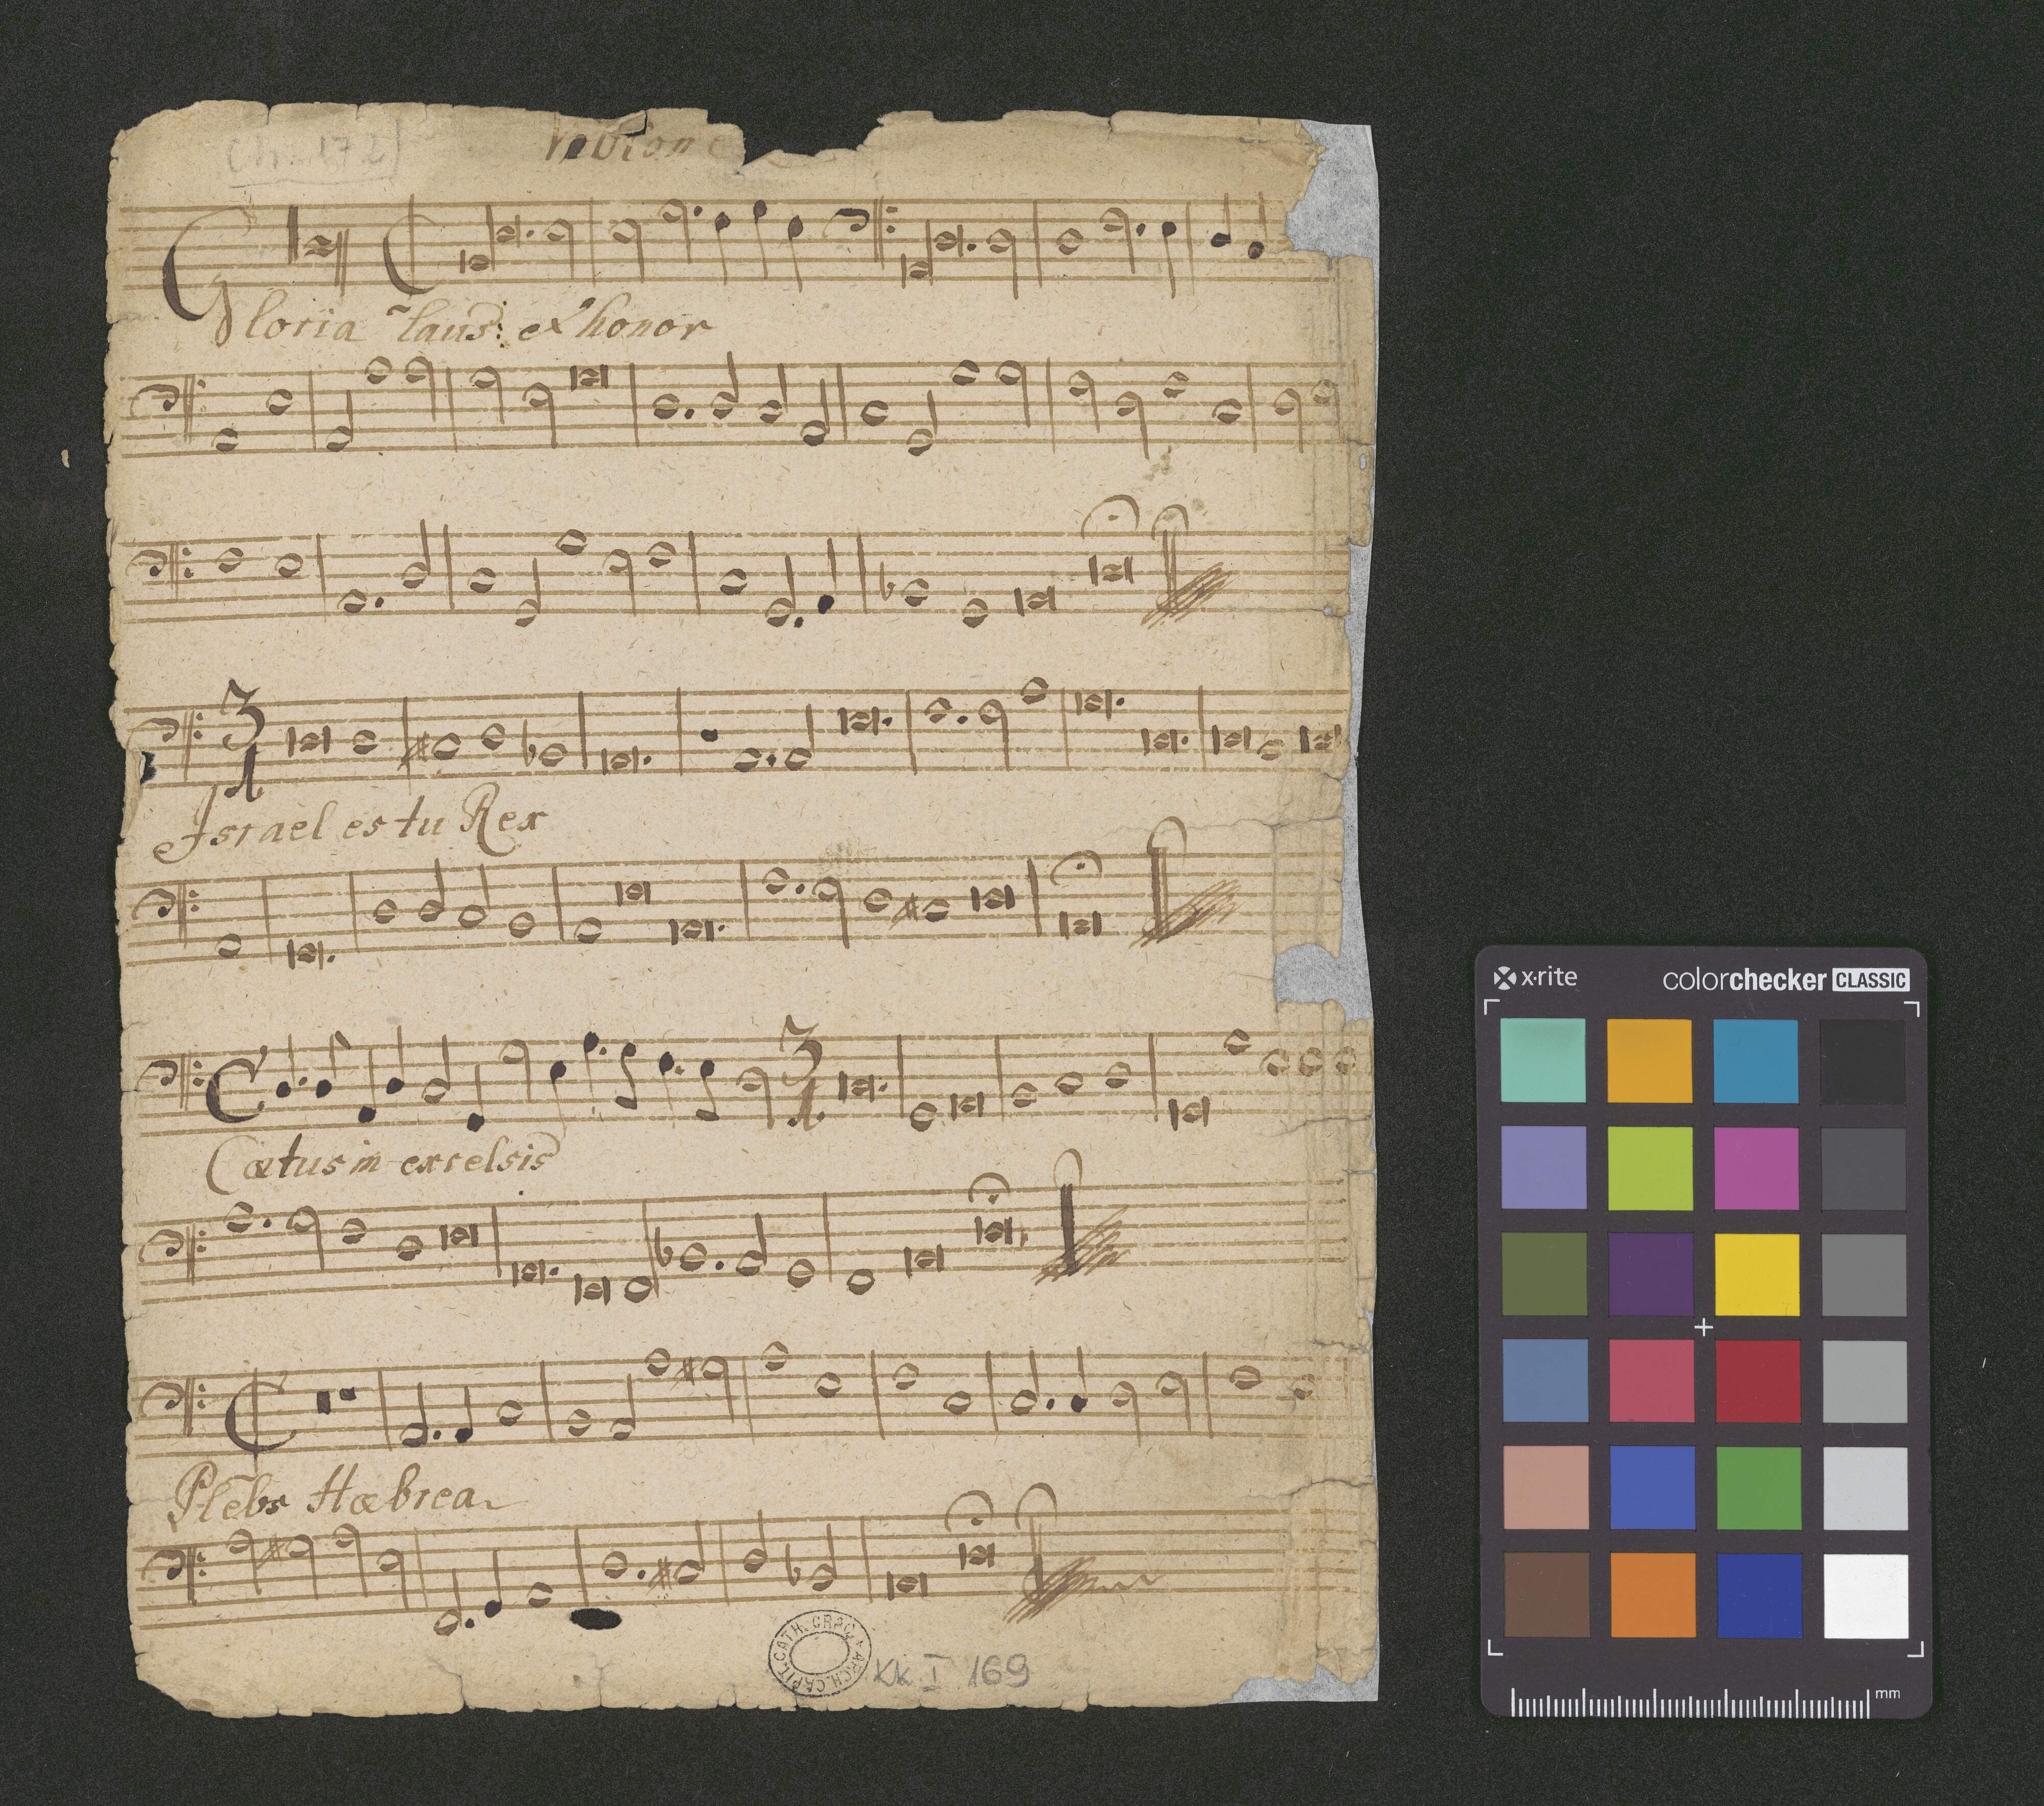 (h. 172)
Gloria laus: et honor
3
1
Israel es tu Rex
3
1.
Cœtus in excelsis
Plebs Hæbrea
CAPIT. CATH. CRAC. ARCH.
KK I 169
x·rite colorchecker CLASSIC
mm